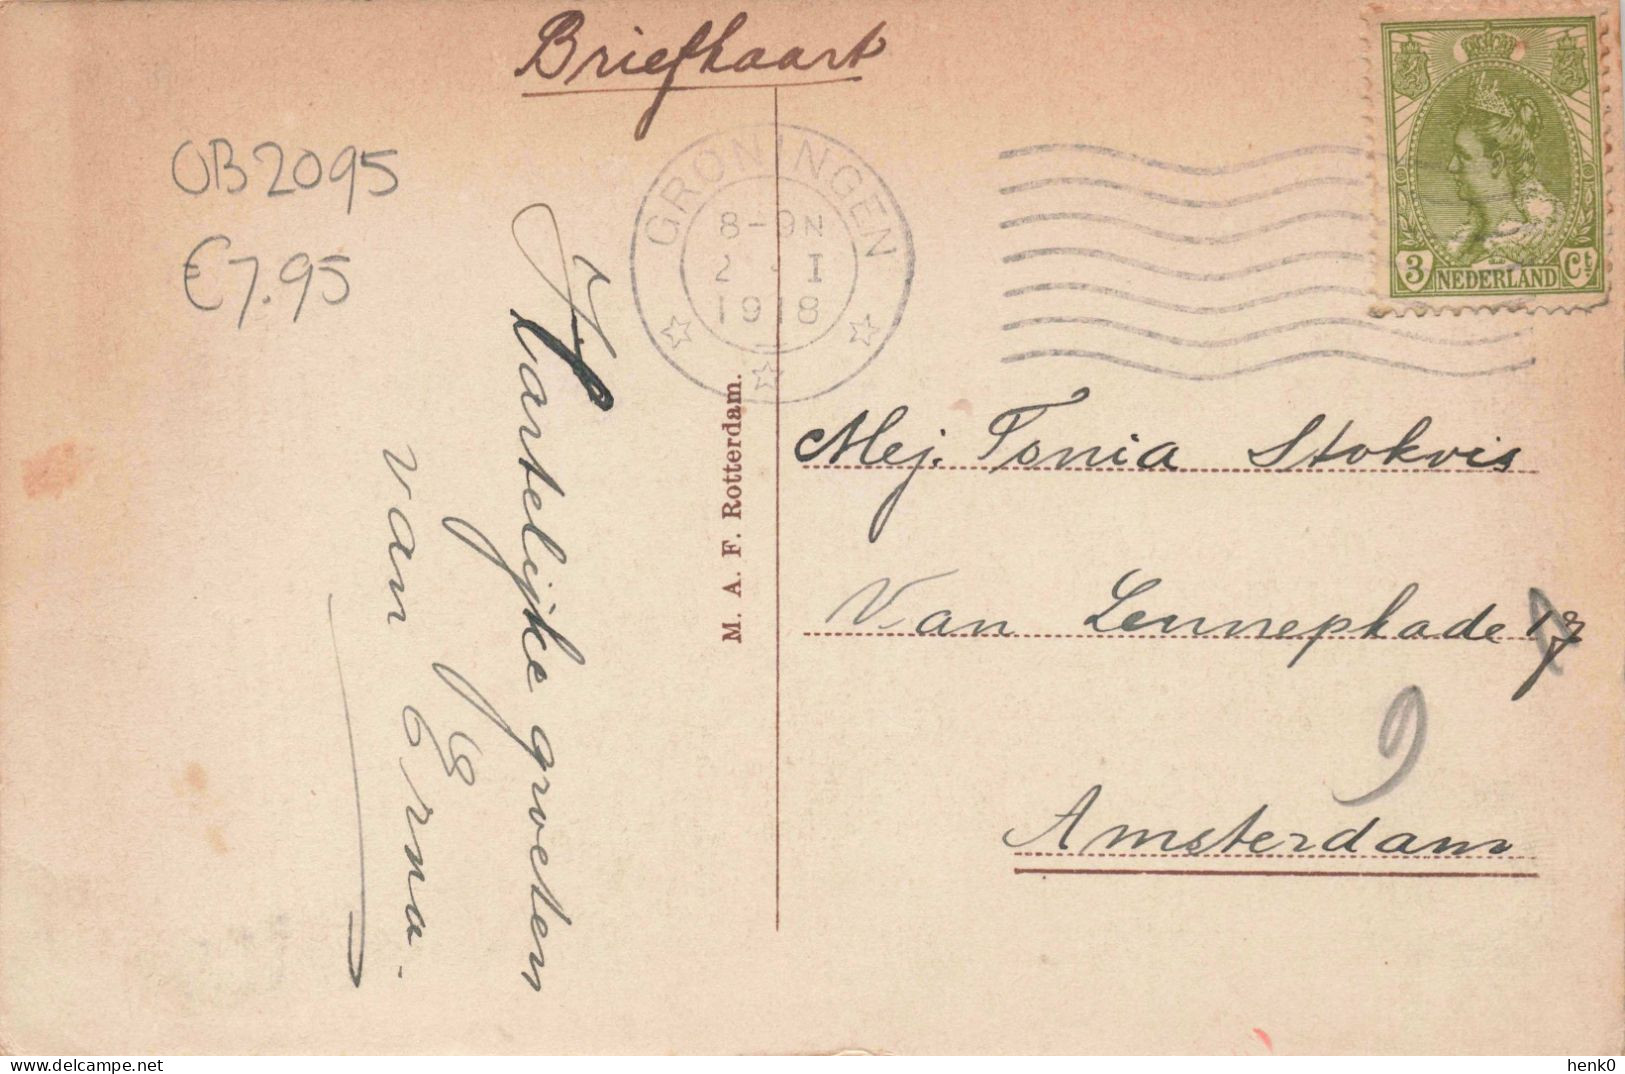 Briefkaart
OB2095
€7.95
GRONINGEN
8-9N
2 · I
1918
3 NEDERLAND Ct
Hartelijke groeten
van Erna.
M. A. F. Rotterdam.
Mej. Tonia Stokvis
Van Lennepkade
9
Amsterdam
henk0